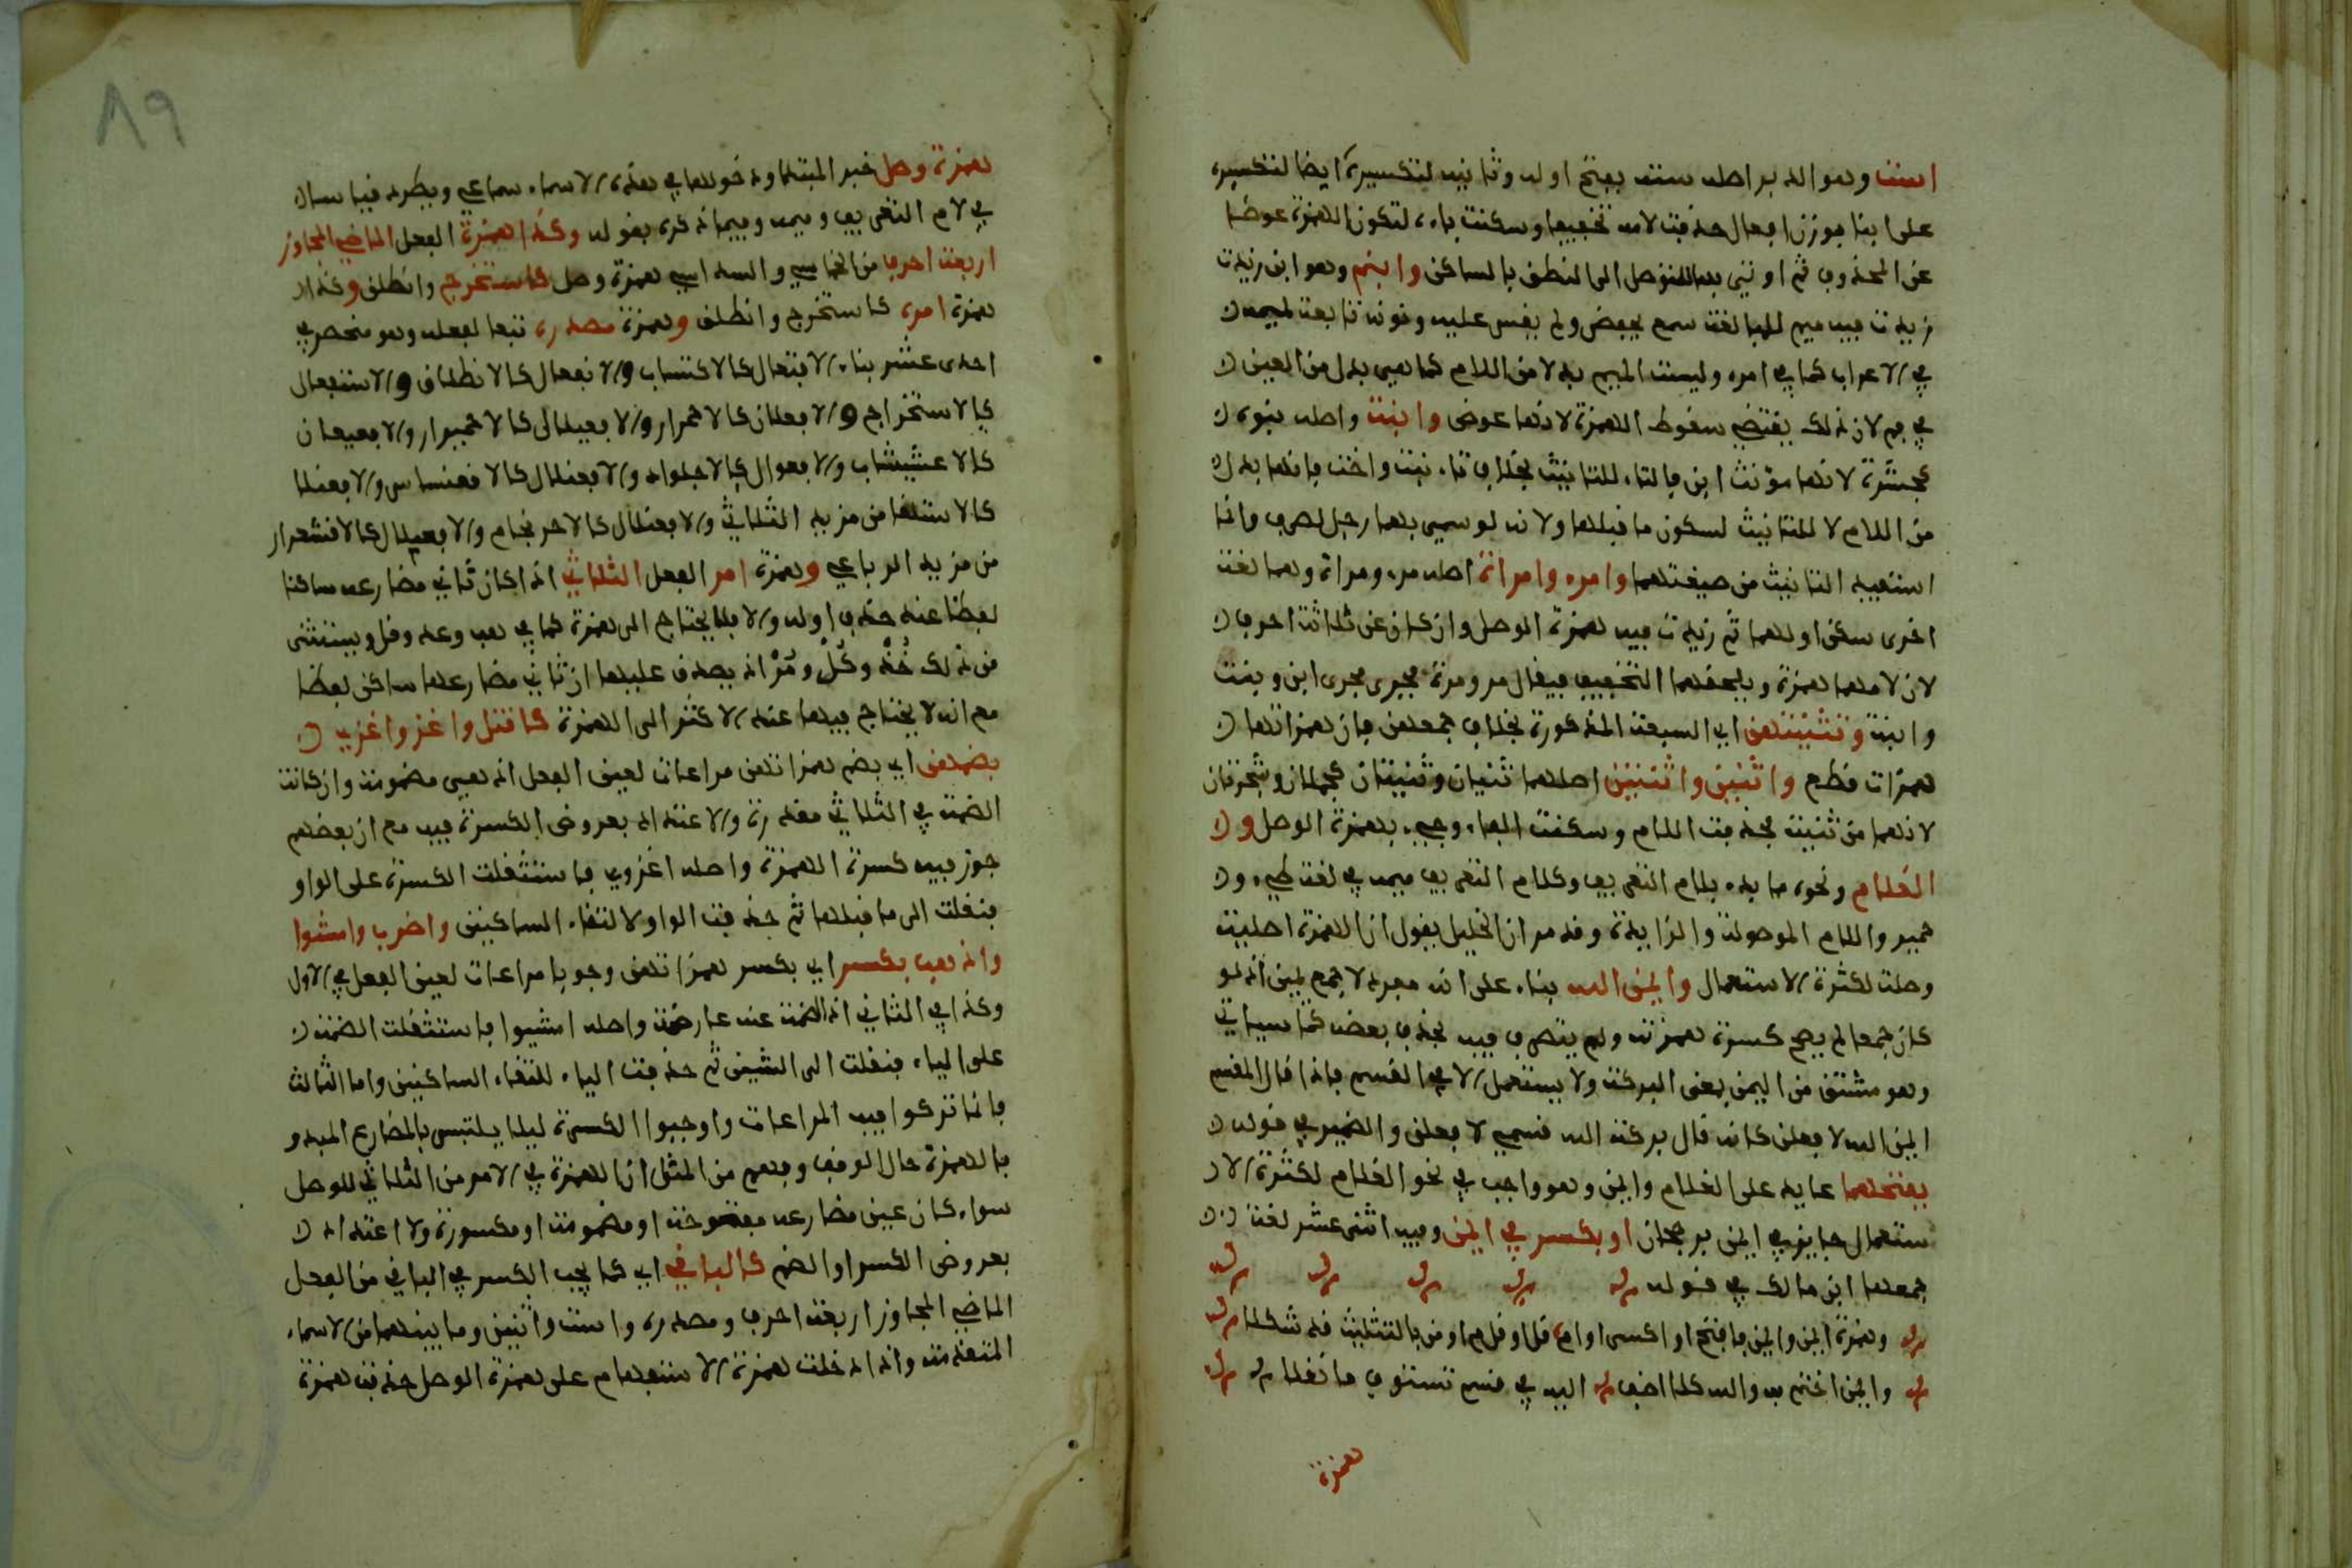 است وهو الدبر اصله سته بفتح اوله وثانيه لتكسيره ايضا لتكسيره
على ابنا بوزن افعال حذفت لامه تخفيفا وسكنت باء لتكون الهمزة عوضا
عن المحذوف ثم اوتي بها للتوصل الى النطق بالساكن وابنم وهو ابن زيدت
زيدت فيه ميم للمبالغة سمع لبعض ولم يقس عليه ونونه تابعة لميمه
في الاعراب كما في امره وليست الميم بدلا من اللام كما هي بدل من العين
في فم لان ذلك يقتضي سقوط الهمزة لانها عوض وابنت واصله بنوه
كجشرة لانها مؤنث ابن بالتاء للتانيث بخلاف تاء بنت واخت فانها بدل
من اللام لا للتانيث لسكون ما قبلها ولانه لو سمي بهما رجل لصرف وانما
استفيد التانيث من صيغتهما وامرء وامراة اصله مرء ومراة وهما لغة
اخرى سكن اولهما ثم زيدت فيه همزة الوصل وان كان عن ثلاثة احرف
لان لامهما همزة ويلحقهما التخفيف فيقال مر ومرة فجرى مجرى ابن وبنت
وابنة وتثنيتهن اي السبعة المذكورة بخلاف جمعهن فان همزاتها
همزات قطع واثنين واثنتين اصلهما ثنيان وثنيتان كجملان وشجرتان
لانهما من ثنيت فحذفت اللام وسكنت الفاء وجيء بهمزة الوصل و
الغلام ونحوه مابدء بلام التعريف وكلام التعريف ميمه في لغة طيء و
حمير واللام الموصولة والزايدة وقد مر ان الخليل يقول ان الهمزة اصلية
وصلت لكثرة الاستعمال وايمن الله بناء على انه مفرد لا جمع يمين اذ لو
كان جمعا لم يصح كسرة همزته ولم يتصرف فيه بحذف بعضه كما سياتي
وهو مشتق من اليمن بمعنى البركة ولا يستعمل الا في القسم فاذا قال المقسم
ايمن الله لافعلن كانه قال بركة الله قسمي لافعلن والضمير في قوله
بفتحهما عايد على الغلام وايمن وهو واجب في نحو الغلام لكثرة الا
ستعمال جايز في ايمن برجحان او بكسر في ايمن وفيه اثنى عشر لغة
جمعها ابن مالك في قوله
وهمزة ايمن وايمن فافتح او اكسى او ام قل او قل م او من بالتثليث قد شكلا
وايمن اختم به والله كلا اضف اليه في قسم تستوف ما نقلا
همزة
همزة وصل خبر المبتدا ودخولها في هذه الاسماء سماعي ويطرد قياسا
في لام التعريف وميمه وفيما ذكره بقوله وكذا همزة الفعل الماضي المجاوز
اربعة احرف من الخماسي والسداسي همزة وصل كاستخرج وانطلق وكذا
همزة امره كاستخرج وانطلق وهمزة مصدره تبعا لفعله وهو منحصر في
احدى عشر بناء الافتعال كالاكتساب والانفعال كالانطلاق والاستفعال
كالاستخراج والافعلال كالاحمرار والافعيلال كالاحميرار والافعيعال
كالاعشيشاب والافعوال كالاجلواذ والافعنلال كالاقعنساس والافعنلا
كالاستلقا من مزيد الثلاثي والافعنلال كالاحرنجام والافعيلال كالاقشعرار
من مزيد الرباعي وهمزة امر الفعل الثلاثي اذا كان ثاني مضارعه ساكنا
لفظا عند حذف اوله والا فلا يحتاج الى همزة كما في هب وعد وقل ويستثنى
من ذلك خُذْ وكُلْ ومُرْ اذ يصدق عليها ان ثاني مضارعها ساكن لفظا
مع انه لا يحتاج فيها عند الاكثر الى الهمزة كاقتل واغز واغزي
بضمهن اي بضم همزاتهن مراعات لعين الفعل اذ هي مضمومة وان كانت
الضمة في الثلاثي مقدرة والاعتداد بعروض الكسرة فيه مع ان بعضهم
جوز فيه كسرة الهمزة واصله اغزوي فاستثقلت الكسرة على الواو
فنقلت الى ما قبلها ثم حذفت الواو لالتقاء الساكنين واضرب وامشوا
واذهب بكسر اي بكسر همزاتهن وجوبا مراعات لعين الفعل في الاول
وكذا في الثاني اذ الضمة عنه عارضة واصله امشيوا فاستثقلت الضمة
على الياء فنقلت الى الشين ثم حذفت الياء لالتقاء الساكنين واما الثالث
فانما تركوا فيه المراعات واوجبوا الكسرة ليلا يلتبس بالمضارع المبدو
بالهمزة حال الوقف وفهم من المثل ان الهمزة في الامر من الثلاثي للوصل
سواء كان عين مضارعه مفتوحة او مضمومة او مكسورة ولا اعتداد
بعروض الكسر او الضم كالباقي اي كما يجب الكسر في الباقي من الفعل
الماضي المجاوز اربعة احرف ومصدره واست واثنين وما بينهما من الاسماء
المتقدمة واذا دخلت همزة الاستفهام على همزة الوصل حذفت همزة